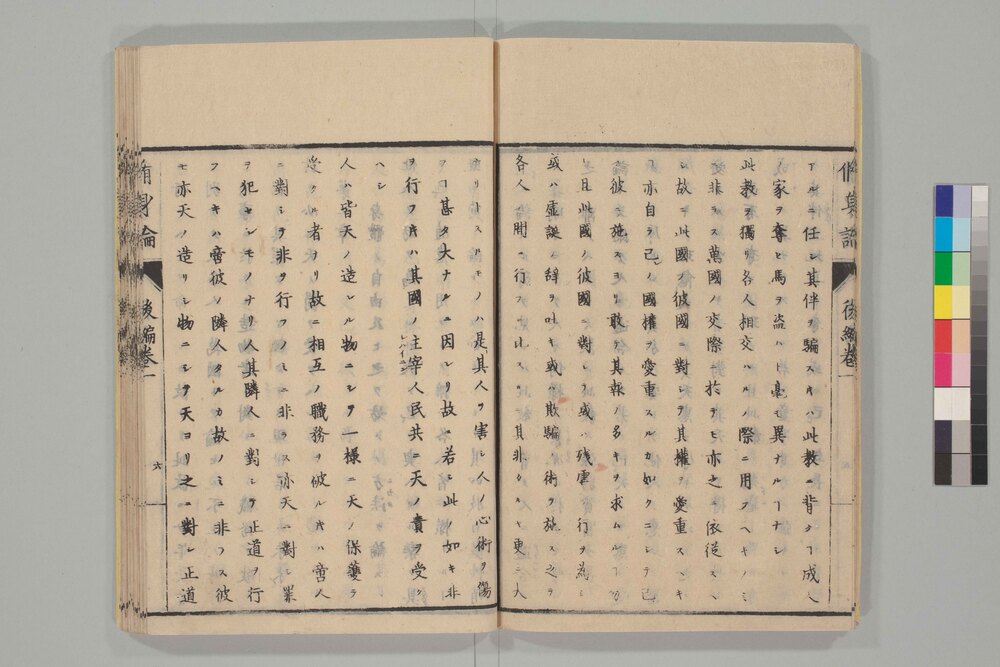 アルニ任シ其伴ヲ騙スキハ此教ニ背クヿ成人
ノ家ヲ奪ヒ馬ヲ盗ムト毫モ異ナルヿナシ
此教ヲ獨リ各人相交ハルノ際ニ用フヘキノミ
ニ非ラス萬國ノ交際ニ於テモ亦之ニ依従スヘ
シ故ニ此國ノ彼國ニ對シテ其權ヲ愛重スヘキ
ヿ亦自ラ己ノ國權ヲ愛重スルカ如クニシテ己
彼ニ施スヨリ敢テ其報ノ多キヲ求ムル
且此國ノ彼國ニ對シテ或ハ残虐ノ行ヲ為シ
或ハ虚誕ノ辞ヲ吐キ或ハ欺騙ノ術ヲ施ス之ヲ
各人ノ間ニ行フニ比スレハ其非タルヤ更ニ大
ナリトス此モノハ是其人ヲ害シ人ノ心術ヲ傷
フヿ甚タ大ナルニ因レリ故ニ若シ此ノ如キ非
ヲ行フ片ハ其國ノ主宰人民共ニ天ノ責ヲ受ク
ヘシ
人ハ皆天ノ造レル物ニシテ一様ニ天ノ保護ヲ
受クル者ナリ故ニ相互ノ職務ヲ破ル片ハ啻人
ニ對シテ非ヲ行フノミニ非ラス亦天ニ對シ罪
ヲ犯セシモノナリ人其隣人ニ對シテ正道ヲ行
フヘキハ啻彼ノ隣人タルカ故ノミニ非ラス彼
モ亦天ノ造リシ物ニシテ天ヨリ之ニ對シ正道
脩身論
後編巻一
六